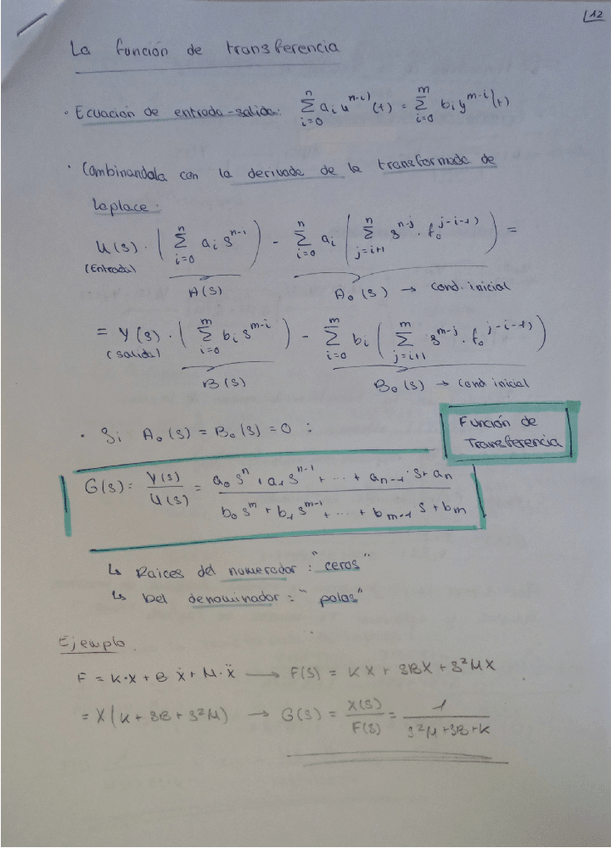 12
La función de transferencia
· Ecuación de entrada-salida: n Σ i=0 aᵢ u^(n-i)(t) = m Σ i=0 bᵢ y^(m-i)(t)
· Combinandola con la derivada de la transformada de
Laplace:
U(s) · ( n Σ i=0 aᵢ s^(n-i) ) - n Σ i=0 aᵢ ( n Σ j=i+1 s^(n-j) · f₀^(j-i-1) ) =
(Entrada) A(s) A₀(s) → Cond. inicial
= Y(s) · ( m Σ i=0 bᵢ s^(m-i) ) - m Σ i=0 bᵢ ( m Σ j=i+1 s^(m-j) · f₀^(j-i-1) )
(salida) B(s) B₀(s) → Cond inicial
· Si A₀(s) = B₀(s) = 0 :
Función de
Transferencia
G(s) = Y(s)/U(s) = (a₀ s^n + a₁ s^(n-1) + ... + a_(n-1) · s + a_n) / (b₀ s^m + b₁ s^(m-1) + ... + b_(m-1) s + b_m)
↳ Raices del numerador : "ceros"
↳ Del denominador : "polos"
Ejemplo
F = K·X + B Ẋ + M·Ẍ → F(s) = KX + SBX + S²MX
= X(K + SB + S²M) → G(s) = X(s)/F(s) = 1/(S²M + SB + K)